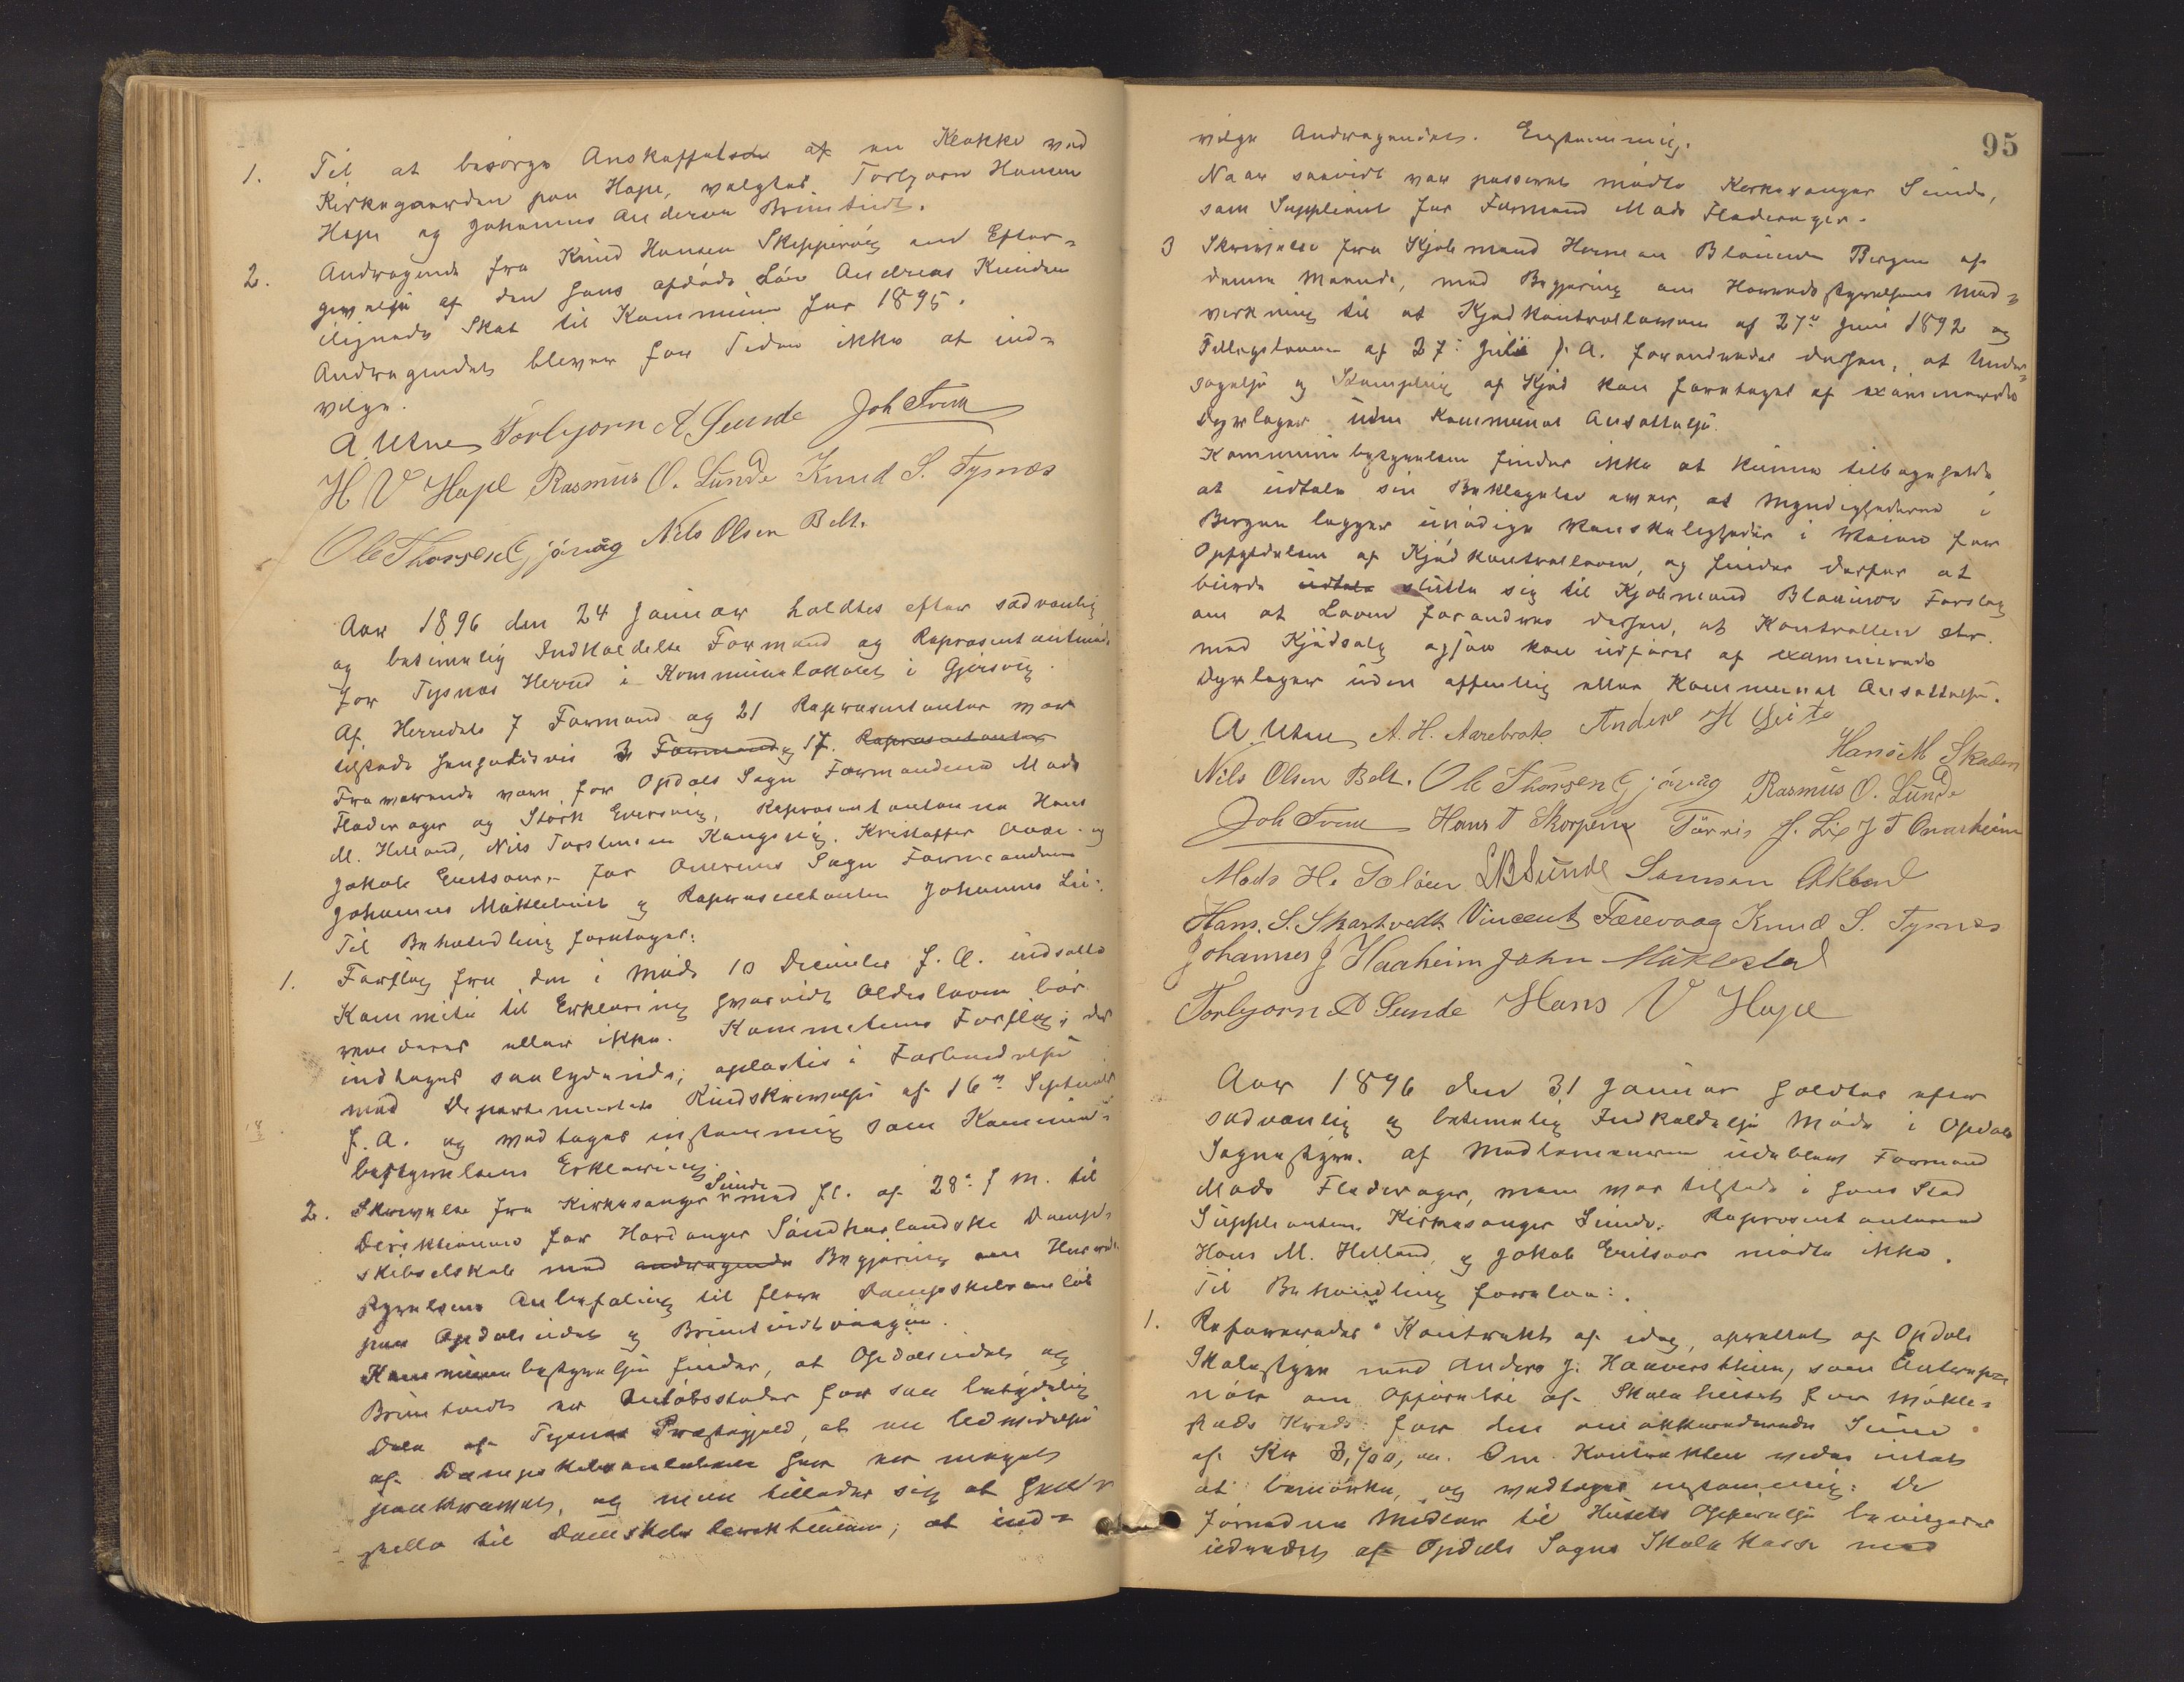 1. Til at besørge Anskaffelsen af en Klokke ved
Kirkegaarden paa Hope, valgtes Torbjørn Hansen
Hope og Johannes Andersen Brimtveidt.
2. Andragende fra Knud Hansen Skippervig om Efter-
givelse af den hans afdøde Søn Andreas Knudsen
ilignede Skat til Kommunen for 1895.
Andragendet bliver for Tiden ikke at ind-
vilge.
A. Utne Torbjørn A Sunde Joh Trem
H V Hope Rasmus O. Lunde Knud S. Tysnæs
Ole Thorsen Gjøvåg Nils Olsen Belt.
Aar 1896 den 24 Januar holdtes efter sædvanlig
og betimelig Indkaldelse Formand og Repræsentantmøde
for Tysnæs Herred i Kommunelokalet i Gjersvig.
Af Herredets 7 Formænd og 21 Repræsentanter var
tilstede henholdsvis 3 Formænd og 17. Repræsentanter
Fraværende vare for Opdals Sogn Formændene Mads
Fladerager og Størk Eversvig, Repræsentanterne Hans
M. Helland, Nils Torstensen Kongsvig, Kristoffer Aase og
Jakob Ericksen. For Onerems Sogn Formanden
Johannes Møklebust og Repræsentanten Johannes Lie.
Til Behandling foretoges:
1. Forslag fra den i Møde 10 December f. A. nedsatte
Kommite til Erklæring hvorvidt Odelsloven bør
revideres eller ikke. Kommiteens Forslag, der
indtages saalydende, oplæstes i Forbindelse
med Departementets Rundskrivelse af 16de September
f. A. og vedtages enstemmig som Kommune-
bestyrelsens Erklæring.
2. Skrivelse fra Kirkesanger Sunde med fl. af 28. f M. til
Direktionen for Hardanger Søndhorlandske Damp-
skibsselskab med andragende Begjæring om Herreds-
styrelsens Anbefaling til flere Dampskibsanløb
paa Opdalsidet og Brimtveidtvaagen.
Kommunebestyrelsen finder, at Opdalsidet og
Brimtveidt er Anløbssteder for saa betydelig
Dele af Tysnæs Præstegjeld, at en Udvidelse
af Dampskibsanløbene her er meget
paakrævet, og man tillader sig at hen-
stille til Dampskibsdirektionen, at ind-
95
vilge Andragendet. Enstemmig.
Naar saavidt var passeret mødte Kirkesanger Sunde,
som Suppleant for Formand Mads Fladerager.
3 Skrivelse fra Kjøbmand Herman Blauuw Bergen af
denne Maaned, med Begjæring om Herredsstyrelsens Med-
virkning til at Kjødkontrolloven af 27de Juni 1892 og
Tillægsloven af 27. Juli f. A. forandredes derhen, at Under-
søgelse og Stempling af Kjød kan foretages af examinerede
Dyrlæger uden Kommunal Ansættelse.
Kommunebestyrelsen finder ikke at kunne tilbageholde
at udtale sin Beklagelse over, at Myndighederne i
Bergen lægger unødige Vanskeligheder i Veien for
Opfyldelsen af Kjødkontrolloven, og finder derfor at
burde udtale slutte sig til Kjøbmand Blauuws Forslag
om at Loven forandres derhen, at Kontrollen etc.
med Kjødsalg ogsaa kan udføres af examinerede
Dyrlæger uden offentlig eller Kommunal Ansættelse.
A. Utne A. H. Aarebrot Anders H Gjeite
Hans M Skaden
Nils Olsen Belt. Ole Thorsen Gjøvåg Rasmus O. Lunde
Joh Trem Hans T Skorpen Tørris J. Lie J T Onarheim
Mads H. Soløen LB Sunde Samson Økland
Hans. S. Skartvedt. Vincent Færevaag Knud S. Tysnæs
Johannes J Haaheim John Møklestad
Torbjørn A Sunde Hans V Hope
Aar 1896 den 31 Januar holdtes efter
sædvanlig og betimelig Indkaldelse Møde i Opdals
Sognestyre. Af Medlemmerne udeblev Formand
Mads Fladerager, men var tilstede i hans Sted
Suppleanten Kirkesanger Sunde. Repræsentanterne
Hans M. Helland, og Jakob Ericksen mødte ikke.
Til Behandling forelaa:
1. Refereredes Kontrakt af idag, oprettet af Opdals
Skolestyre med Anders J. Haaversheim, som Entrepre-
nør om Opførelse af Skolehuset for Møkle-
stads Kreds for den omakkorderede Sum
af Kr 3,700,00. Om Kontrakten vides intet
at bemærke, og vedtages enstemmig. De
fornødne Midler til Husets Opførelse bevilgedes
udredet af Opdals Sogns Skolekasse med